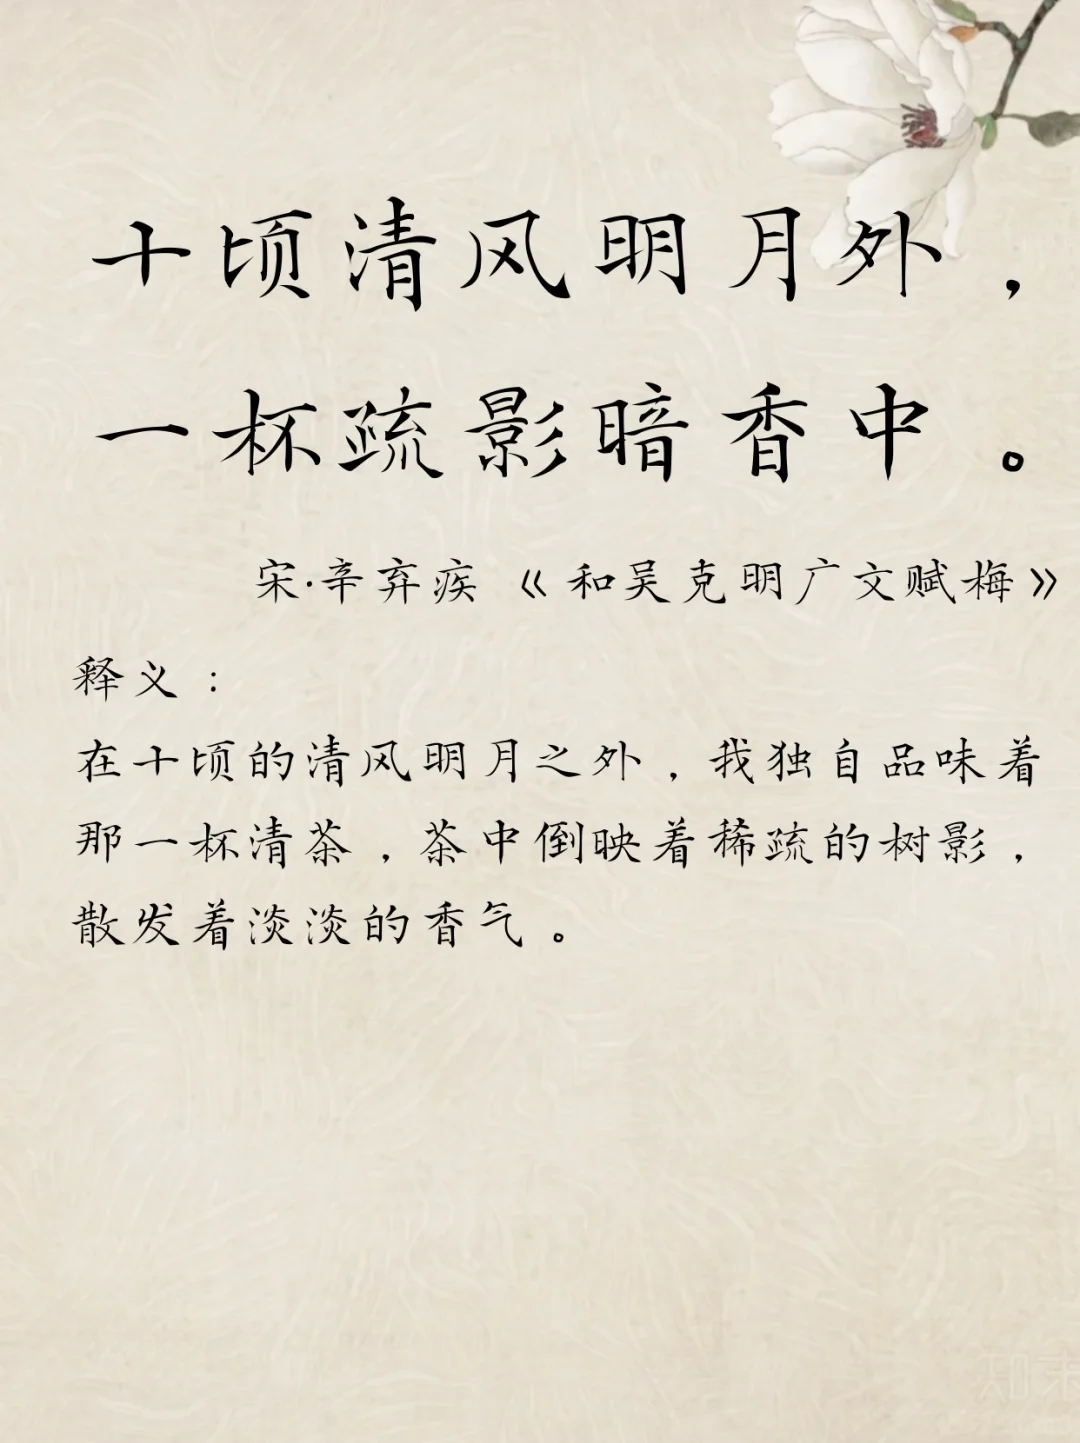 十顷清风明月外，
一杯疏影暗香中。
宋·辛弃疾《和吴克明广文赋梅》
释义：
在十顷的清风明月之外，我独自品味着
那一杯清茶，茶中倒映着稀疏的树影，
散发着淡淡的香气。
知末